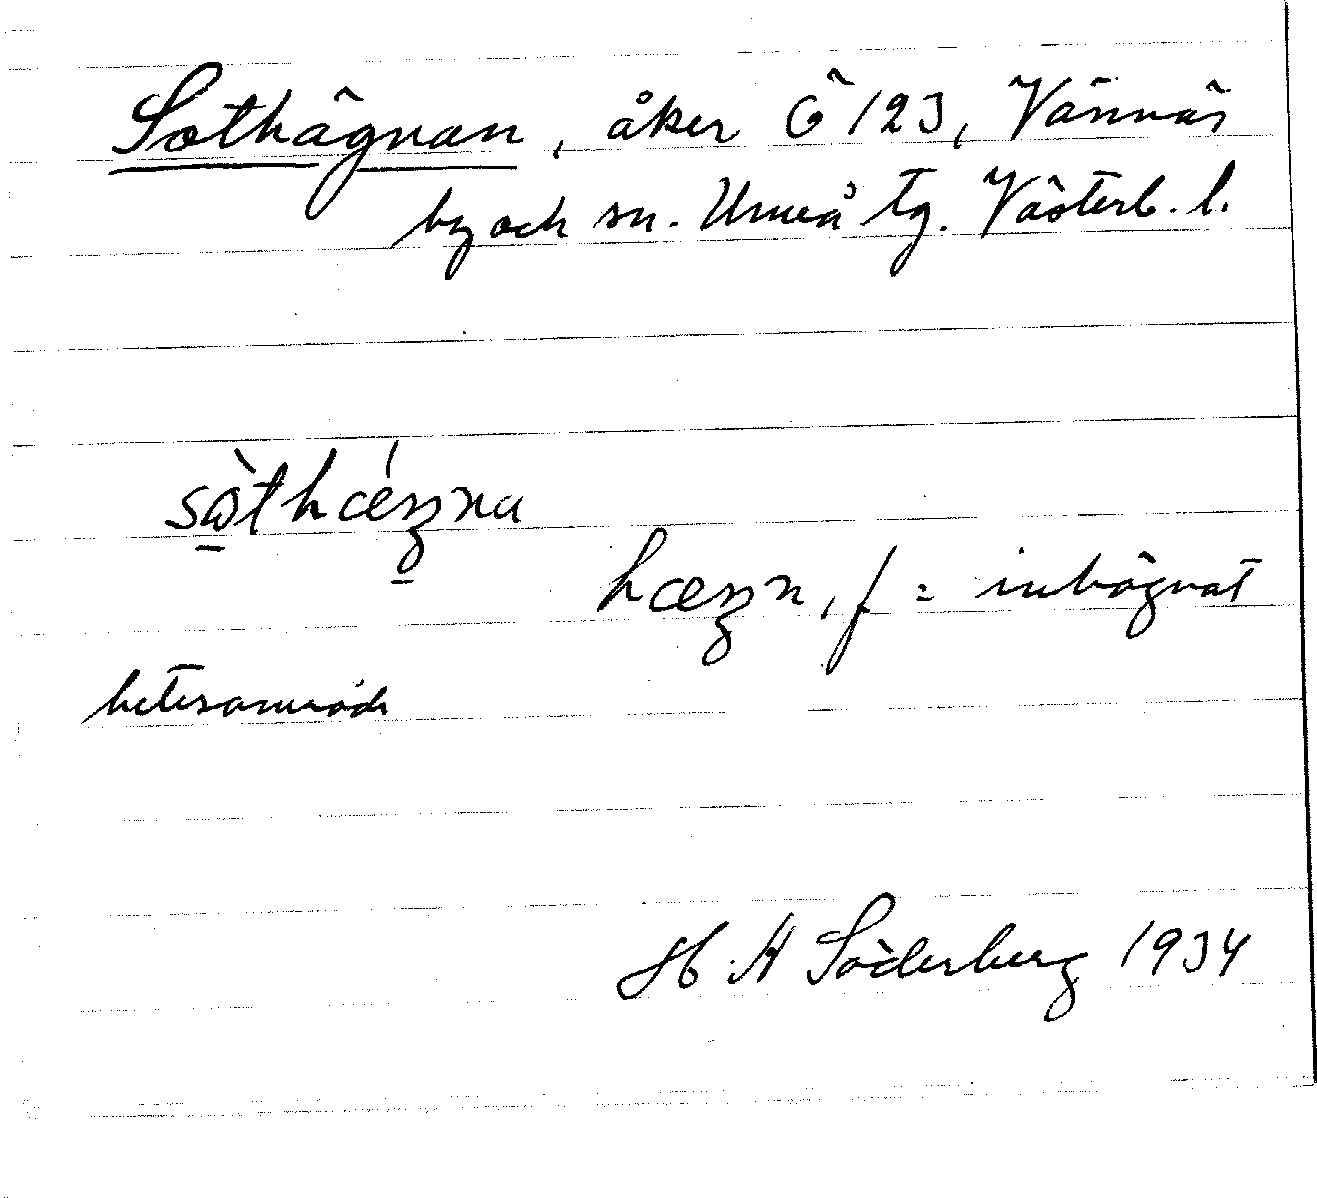 Sothägnan, åker Ö 123, Vännäs
by och sn. Umeå tg. Västerb. l.
hægn, f = inhägnat
betesområde
H H Söderberg 1934